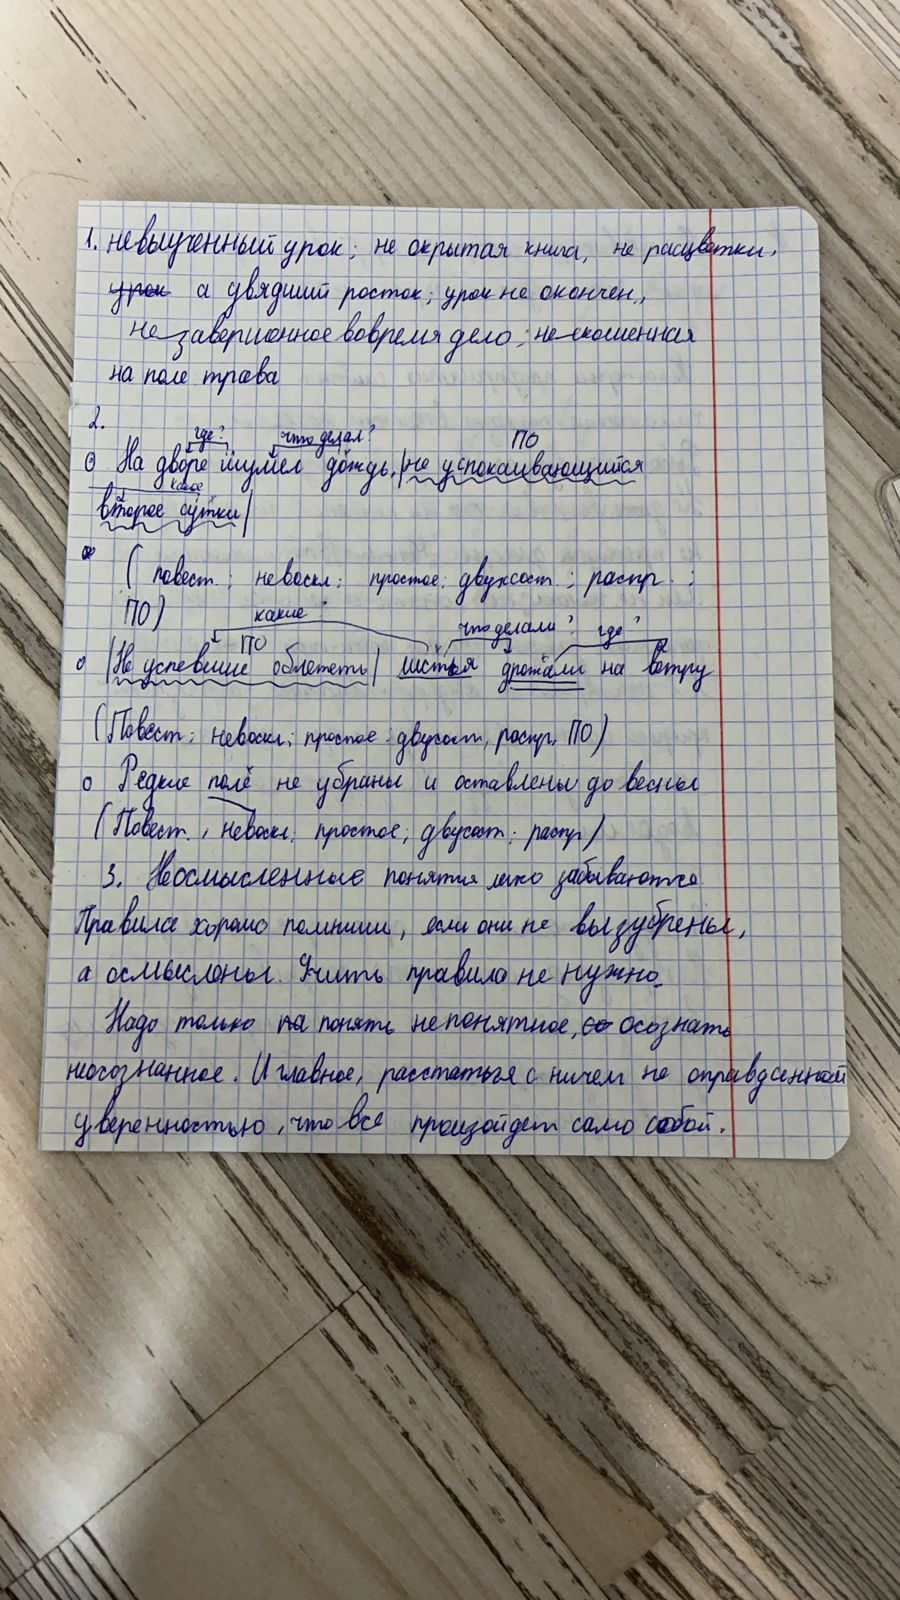 1. невыученный урок; не окрытая книга, не расцветки,
урок а двядший росток; урок не окончен,
не завершонное вовремя дело; не скошенная
на поле трава
2.
где? что делал? ПО
На дворе шумел дождь, |не успокаивающийся
какое
второе сутки|
( повест.; невоскл; простое; двухсост; распр.;
ПО)
какие? что делали? где?
ПО
|Не успевшие облететь| листья дрожали на ветру
(Повест; невоскл; простое; двусост, распр, ПО)
Редкие поле не убраны и оставлены до весны
(Повест, невоскл; простое; двусост; распр)
3. Неосмысленные понятия легко забываются
Правила хорошо помниш, если они не вызубрены,
а осмыслены. Учить правила не нужно.
Надо только на понять непонятное, осознать
неосознанное. И главное, расстаться с ничем не оправданной
уверенностью, что все произойдет само собой.